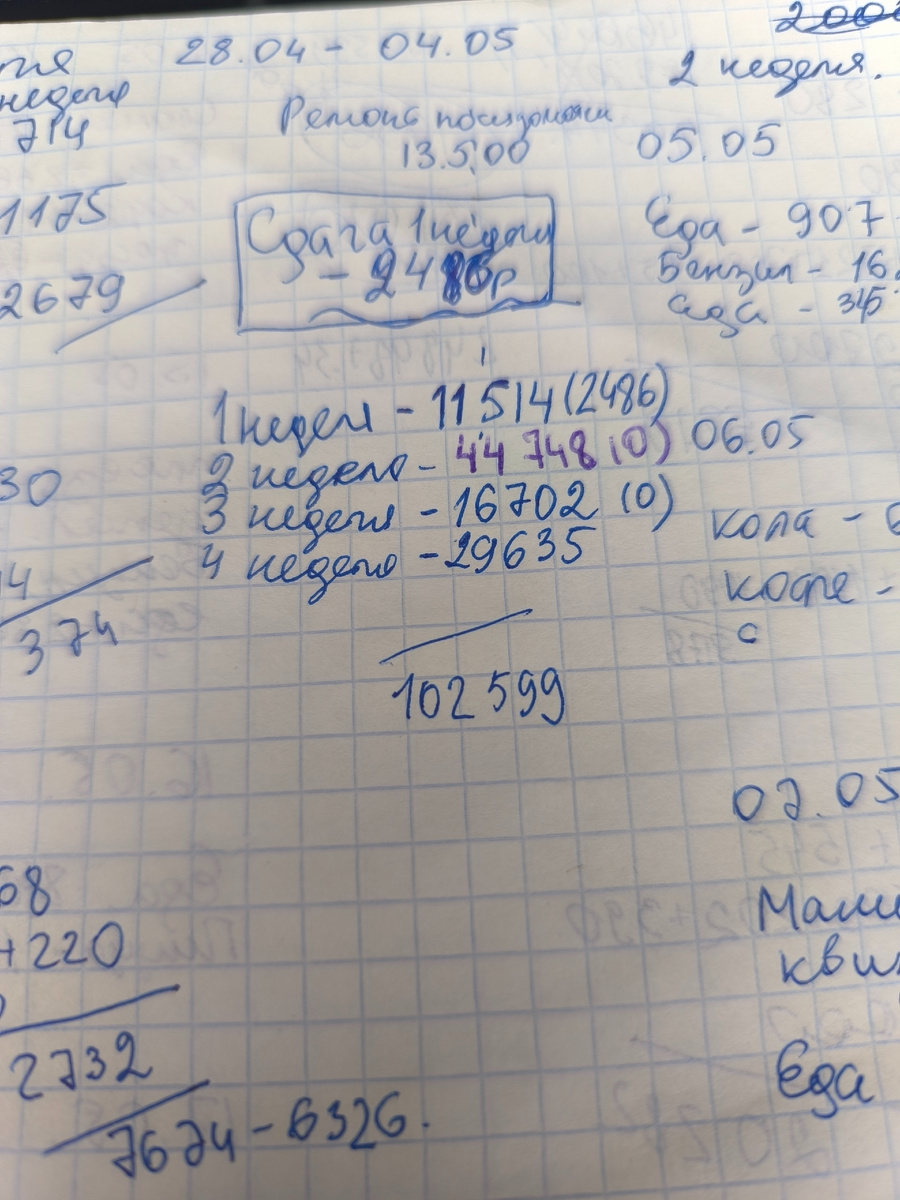 28.04 - 04.05
неделя
714
1175
2679
30
4
374
68
+220
2732
7674 - 6326.
Ремонт
13.500
Сдача 1 недели
- 2486р
1 неделя - 11514 (2486)
2 неделя - 44748 (0)
3 неделя - 16702 (0)
4 неделя - 29635
102599
2 неделя.
05.05
Еда - 907
Бензин - 16
еда - 345
06.05
кола -
кофе -
с
07.05
Еда